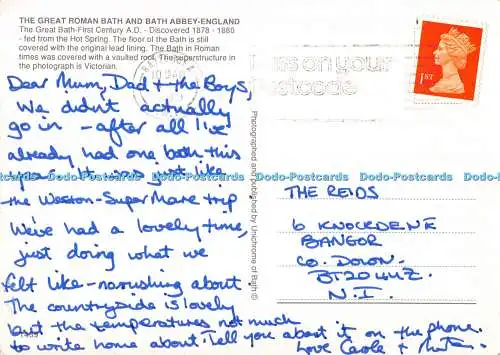 THE GREAT ROMAN BATH AND BATH ABBEY-ENGLAND
The Great Bath-First Century A.D. - Discovered 1878 - 1880
- fed from the Hot Spring. The floor of the Bath is still
covered with the original lead lining. The Bath in Roman
times was covered with a vaulted roof. The superstructure in
the photograph is Victorian.
Dear Mum, Dad & the Boys,
We didn't actually
go in - after all I've
already had one bath this
year. It was just like
the Weston-Super Mare trip
We've had a lovely time,
just doing what we
felt like - narishing about.
The countryside is lovely
but the temperatures not much
to write home about. Tell you about it on the phone.
Love Carole &
Photographed and published by Unichrome of Bath ©
on your
postcode
1ST
THE REIDS
6 KNOCKDENE
BANGOR
CO. DOWN.
BT20 4UZ
N.I.
Dodo-Postcards Dodo-Postcards Dodo-Postcards Dodo-Postcards Dodo-Postcards Dodo-Postcards